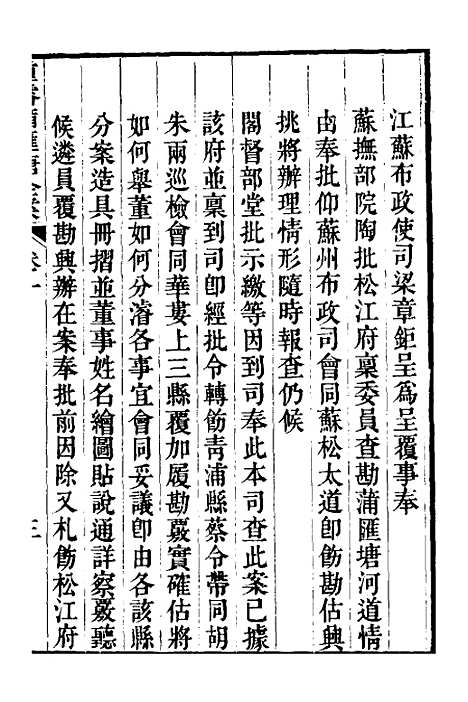 江蘇布政使司梁章鉅呈爲呈覆事奉
蘇撫部院陶批松江府稟委員查勘蒲匯塘河道情
由奉批仰蘇州布政司會同蘇松太道卽飭勘估興
挑將辦理情形隨時報查仍候
閣督部堂批示繳等因到司奉此本司查此案已據
該府並稟到司卽經批令轉飭青浦縣蔡令帶同胡
朱兩巡檢會同華婁上三縣覆加履勘覈實確估將
如何舉董如何分濬各事宜會同妥議卽由各該縣
分案造具冊摺並董事姓名繪圖貼說通詳察覈聽
候遴員覆勘興辦在案奉批前因除又札飭松江府
卷一
三